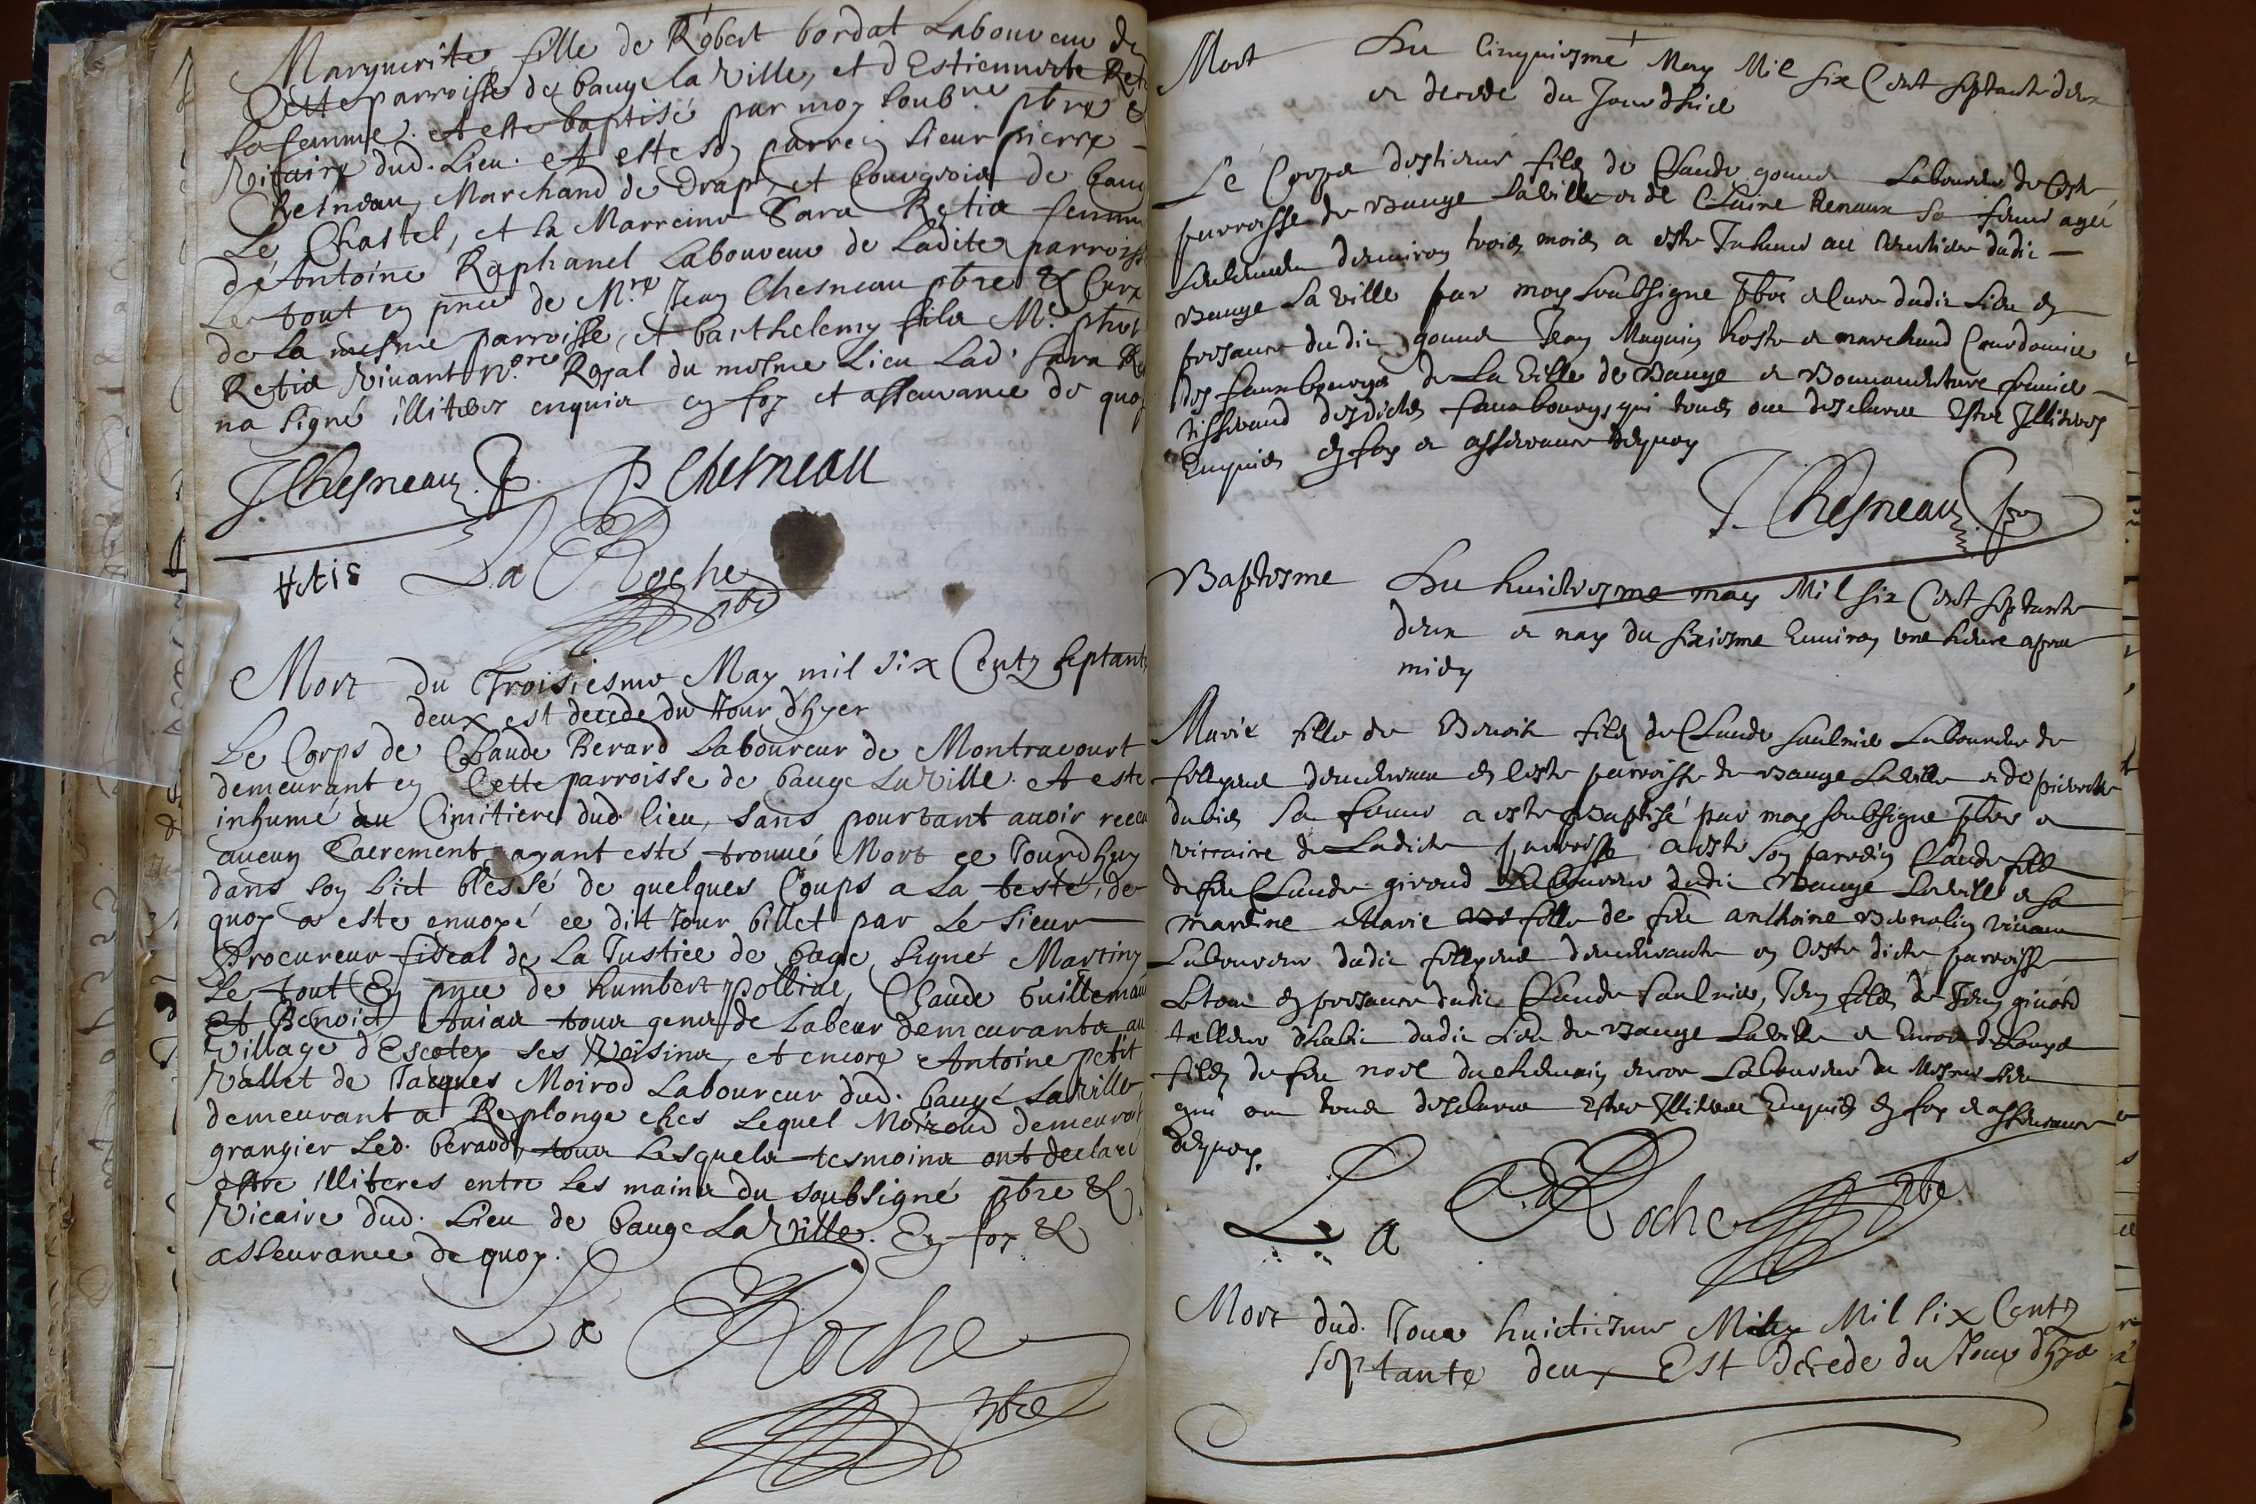 Marguerite fille de Robert bordat Laboureur de
Cette parroisse de bauge la Ville, et d'Estiennette
Sa femme. at esté baptisé par moy soub.ne pbre &
Vicaire dud. Lieu. at esté so parrein sieur pierre
Chesneau, Marchand de Drap, et bourgeois de
Le Chastel, et la Marreine Sara Retis femme
de Antoine Raphanel Laboureur de Ladite parroisse
Le tout en pnce de M.re Jean Chesneau pbre & Curé
de La mesme parroisse, et barthelemy fils M.e
Retis Vivant N.ore Royal du mesme Lieu Lad. Sara
na signé illiteres enquis en foy et asseurance de quoy
J. Chesneau P Chesneau
Retis La Roche pbre
Mort du Troisiesme May mil six Centz septante
deux est decede du Jour d'hyer
Le Corps de Claude Berard Laboureur de Montracourt
demeurant en Cette parroisse de bauge La Ville. At esté
inhumé au Cimitiere dud. lieu, sans pourtant auoir receu
aucun Sacrement, ayant esté trouué Mort ce Jourdhuy
dans son Lict blessé de quelques Coups a La testé, de
quoy a este enuoyé ce dit Jour billet par Le Sieur
Procureur fiscal de La Justice de bage signé Martin
Le tout En pnce de humbert pollial, Claude Guillemau
Et Benoict tous gens de Labeur demeurants au
Village d'Escotey ses Voisins, et encore Antoine petit
Vallet de Jacques Moirod Laboureur dud. baugé La Ville
demeurant a Replonge ches Lequel Moiroud demeuroit
grangier Led. berard, tous Lesquels tesmoins ont declaré
estre illiteres entre Les mains du soubsigné pbre &
Vicaire dud. Lieu de bauge La Ville. En foy &
asseurance de quoy.
La Roche pbre
Mort Du Cinquiesme May Mil six Cent septante deux
et decede du Jour dhier
Le Corps destienne fils de Claude gouned Laboureur de Ceste
parroisse de Bauge Laville et de Claire Renaux sa femme agé
seulement denuiron trois mois a este Inhumé au Cimitiere dudit
Bauge La ville par moy soubsigne pbre et Cure dudit Lieu en
presance dudit gouned Jean Maguin hoste et marchand Courdonnie
des fauxbourgs de La Ville de Bauge et Bonnauenture
tisserand desdicts fauxbourgs qui tous ont desclaré Estre Illiteres
Enquis en foy et asseurance dequoy
J. Chesneau
Baptesme Du huictiesme may Mil six Cent septante
deux et nay du sixiesme Enuiron une heure apres
midy
Marie fille de Benoit fils de Claude saulnie Laboureur de
follyeud demeurant en Ceste parroisse de Bauge Laville et de pierrette
dubiez sa femme a este Baptisé par moy soubsigne pbre et
viccaire de Ladicte parroisse a este son parrein Claude fils
de feu Claude giroud Laboureur dudit Bauge Laville et sa
marrine Marie fille de feu anthoine viuant
Laboureur dudit follyeud demeurante en Ceste dicte parroisse
Le tout en presance dudit Claude saulnie, Jean fils de Jean
tallieur dhabit dudit Lieu de Bauge Laville et Encor
fils de feu noel duchemin encor Laboureur du Mesme Lieu
qui ont tous desclaré Estre Illiteres Enquis en foy et asseurance
dequoy.
La Roche pbre
Mort dud. Jour huictiesme May Mil six Centz
septante deux Est decede du Jour d'hyer